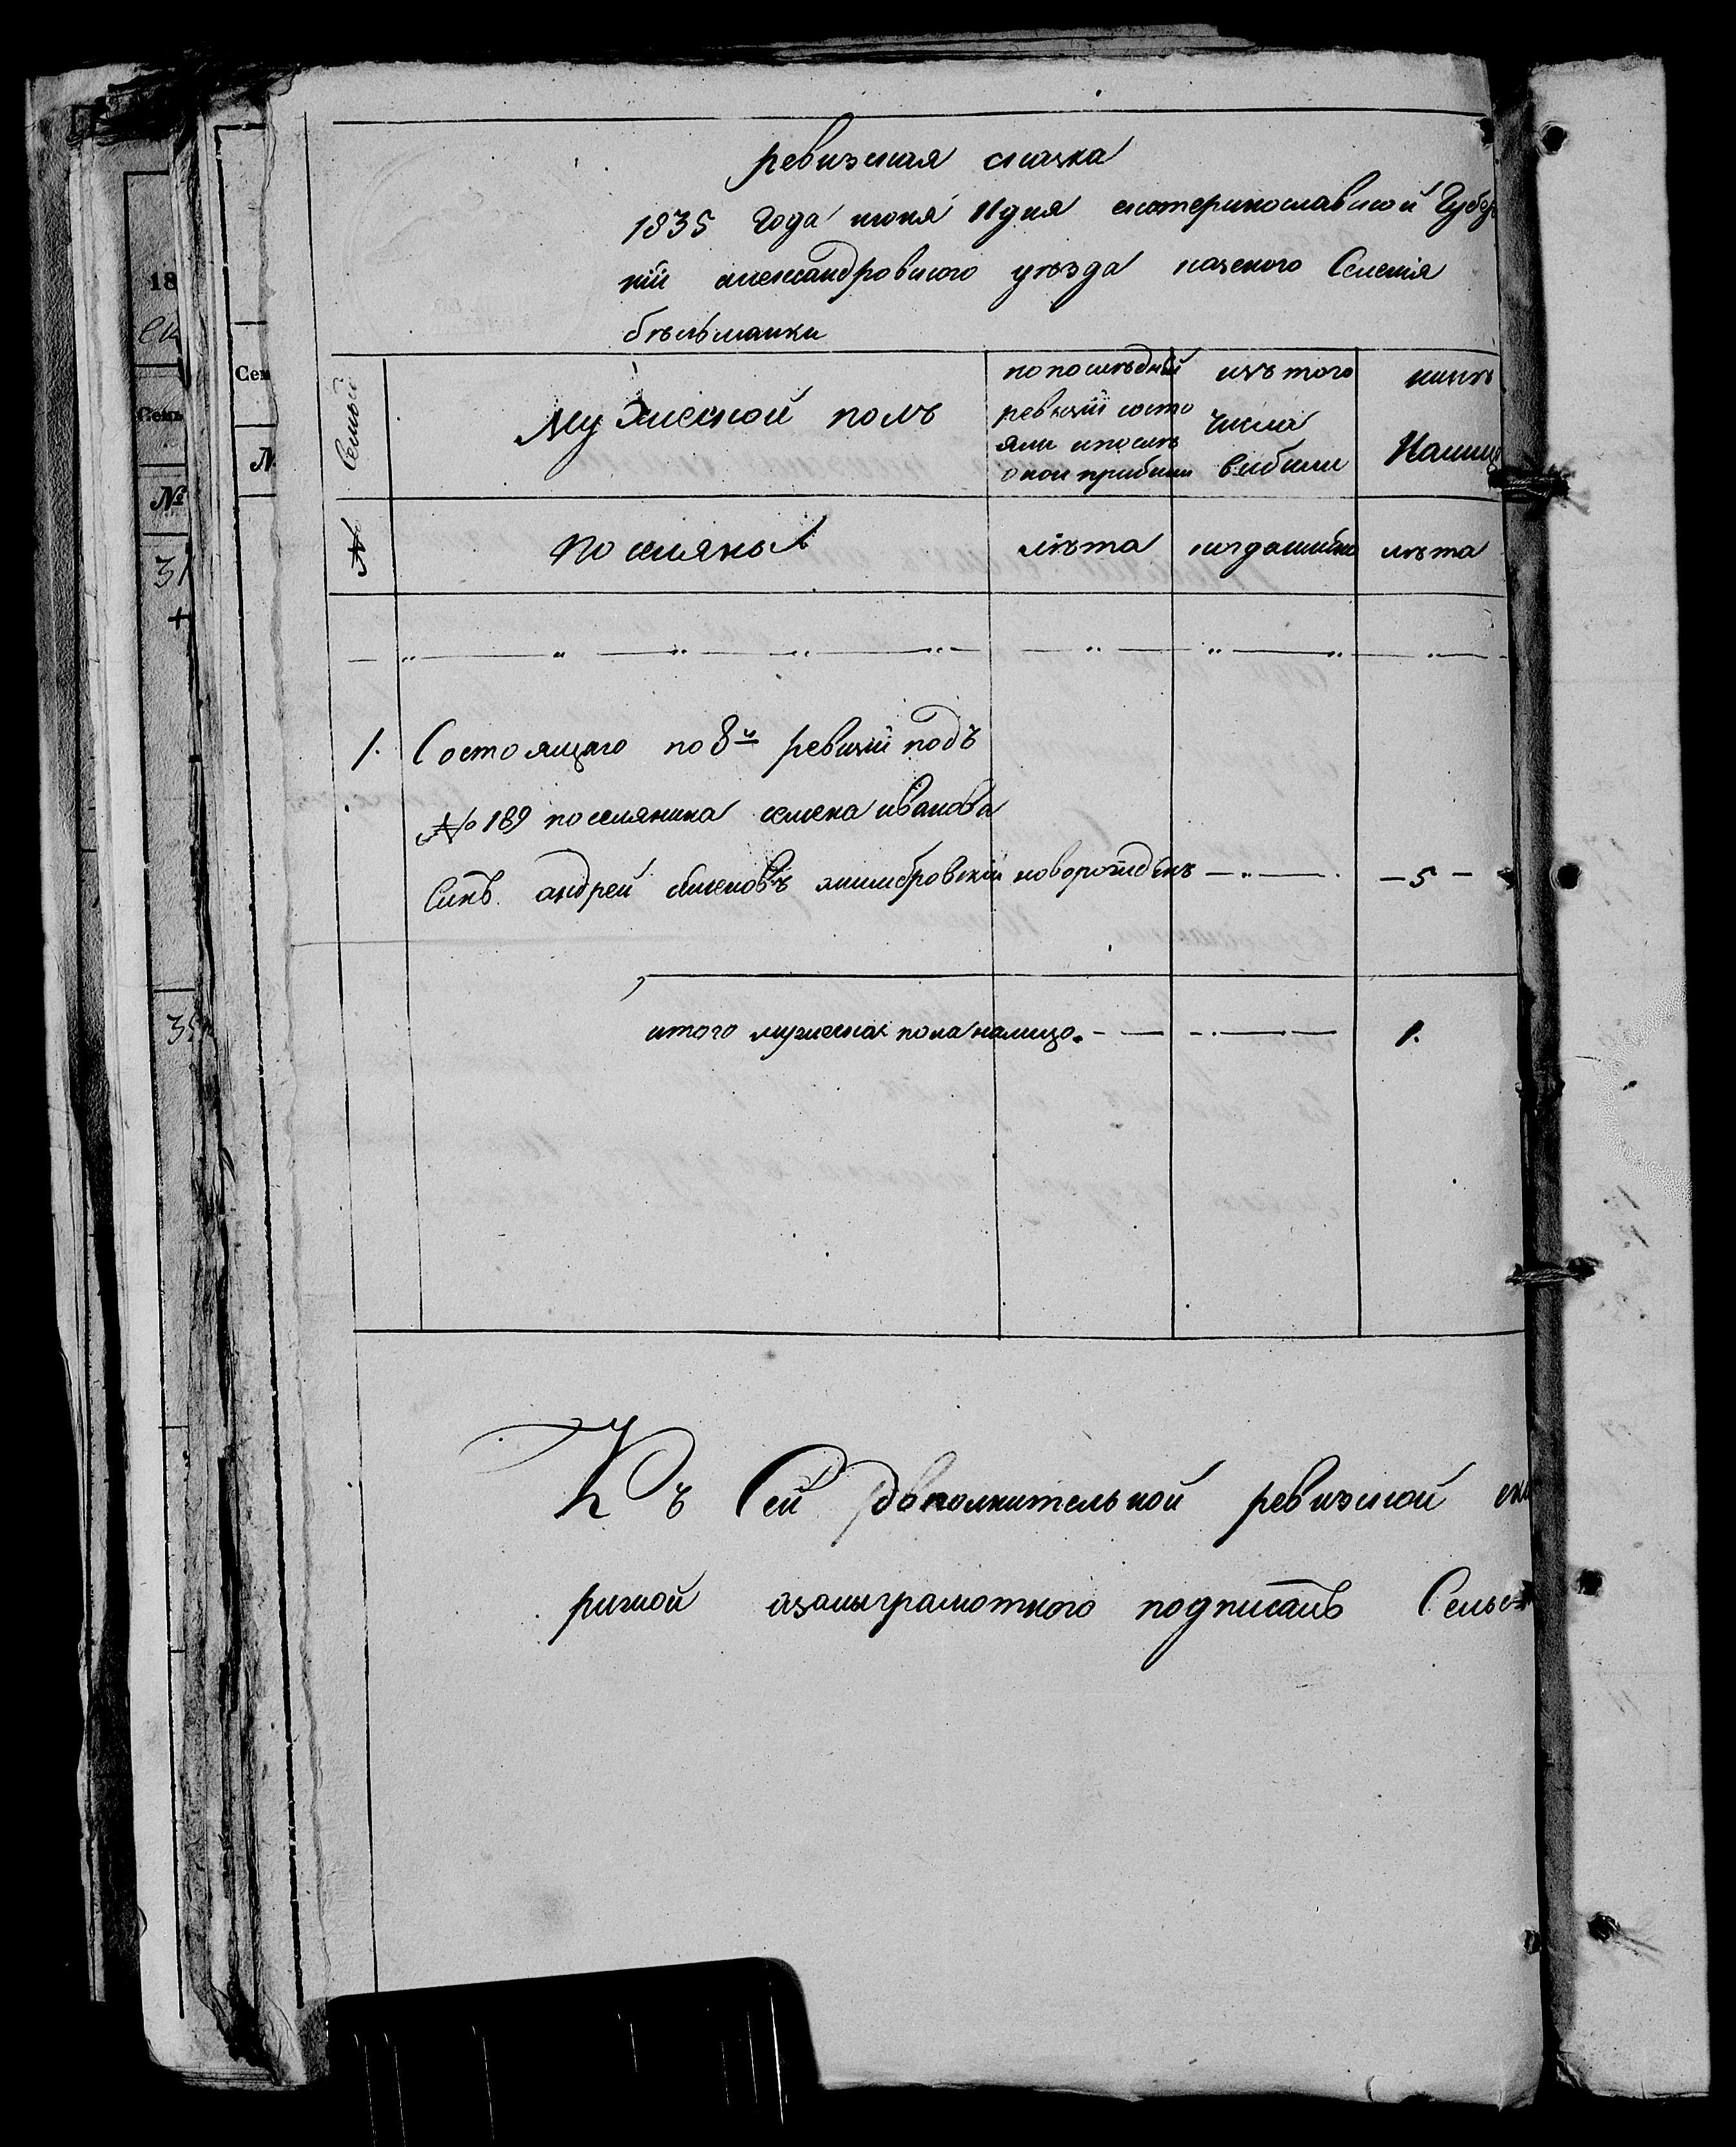 ревизская сказка
1835 года июня 11 дня екатеринославской Губер
нїи александровского уѣзда казеного Селенїя
бѣльманки
Семьи
мужеской полъ
по послѣдней ревизїи состо яли и послѣ оной прибыли
изъ того числа выбыли
нинѣ Налицо
№
поселяны
лѣта
когда имѣно
лѣта
1. Состоящаго по 8й ревизїи подъ
№ 189 поселянина семена иванова
Синъ андрей новорождѣнъ - 5 -
итого мужеска пола налицо. 1.
Къ Сей дополнительной ревизской ска
подписалъ Сельс
18
ек
Сем
№
31
+
Сем
№
35